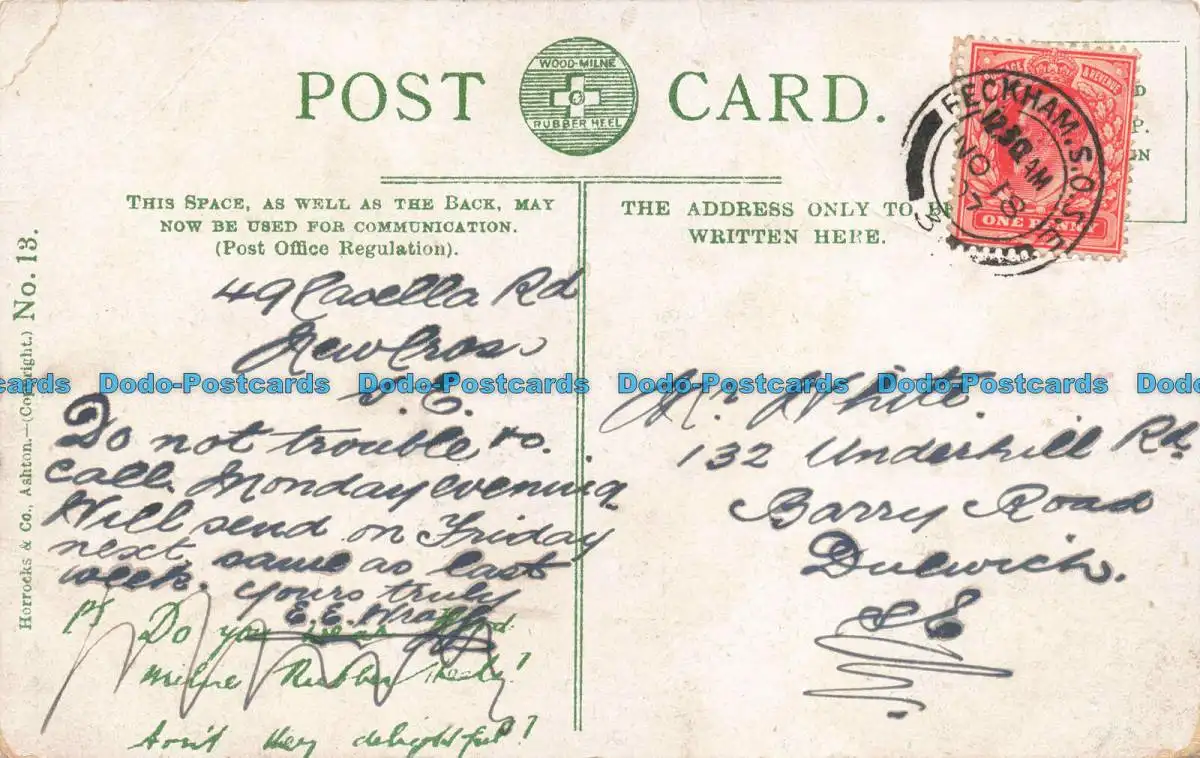 POST CARD.
WOOD-MILNE
RUBBER HEEL
THIS SPACE, AS WELL AS THE BACK, MAY
NOW BE USED FOR COMMUNICATION.
(Post Office Regulation).
THE ADDRESS ONLY TO BE
WRITTEN HERE.
PECKHAM.S.O.S.E
12.30 AM
NO 18
07
POSTAGE & REVENUE
ONE PENNY
Horrocks & Co., Ashton.—(Copyright.) No. 13.
49 Casella Rd
New Cross
S.E.
Do not trouble to
call Monday evening
Will send on Friday
next same as last
week. Yours truly
E.E. Wragg
PS Do you wear Wood
Milne Rubber Heels?
Aren't they delightful?
Mr White.
132 Underhill Rd
Barry Road
Dulwich.
SE
Dodo-Postcards Dodo-Postcards Dodo-Postcards Dodo-Postcards Dodo-Postcards